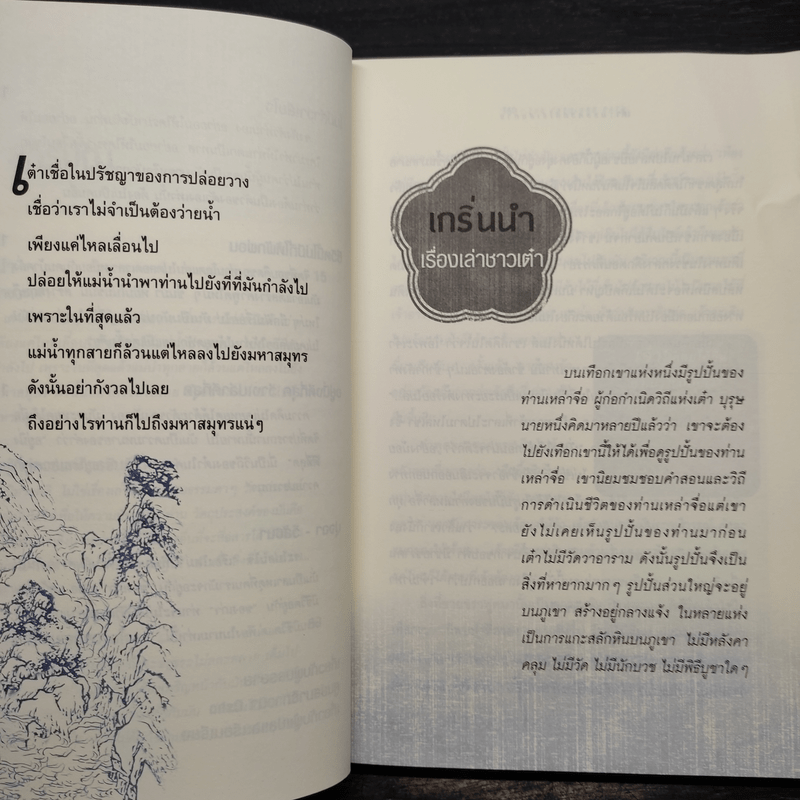 เต๋าเชื่อในปรัชญาของการปล่อยวาง
เชื่อว่าเราไม่จำเป็นต้องว่ายน้ำ
เพียงแค่ไหลเลื่อนไป
ปล่อยให้แม่น้ำนำพาท่านไปยังที่ที่มันกำลังไป
เพราะในที่สุดแล้ว
แม่น้ำทุกสายก็ล้วนแต่ไหลลงไปยังมหาสมุทร
ดังนั้นอย่ากังวลไปเลย
ถึงอย่างไรท่านก็ไปถึงมหาสมุทรแน่ๆ
เกริ่นนำ
เรื่องเล่าชาวเต๋า
บนเทือกเขาแห่งหนึ่งมีรูปปั้นของ
ท่านเหล่าจื่อ ผู้ก่อกำเนิดวิถีแห่งเต๋า บุรุษ
นายหนึ่งคิดมาหลายปีแล้วว่า เขาจะต้อง
ไปยังเทือกเขานี้ให้ได้เพื่อดูรูปปั้นของท่าน
เหล่าจื่อ เขานิยมชมชอบคำสอนและวิถี
การดำเนินชีวิตของท่านเหล่าจื่อแต่เขา
ยังไม่เคยเห็นรูปปั้นของท่านมาก่อน
เต๋าไม่มีวัดวาอาราม ดังนั้นรูปปั้นจึงเป็น
สิ่งที่หายากมากๆ รูปปั้นส่วนใหญ่จะอยู่
บนภูเขา สร้างอยู่กลางแจ้ง ในหลายแห่ง
เป็นการแกะสลักหินบนภูเขา ไม่มีหลังคา
คลุม ไม่มีวัด ไม่มีนักบวช ไม่มีพิธีบูชาใดๆ